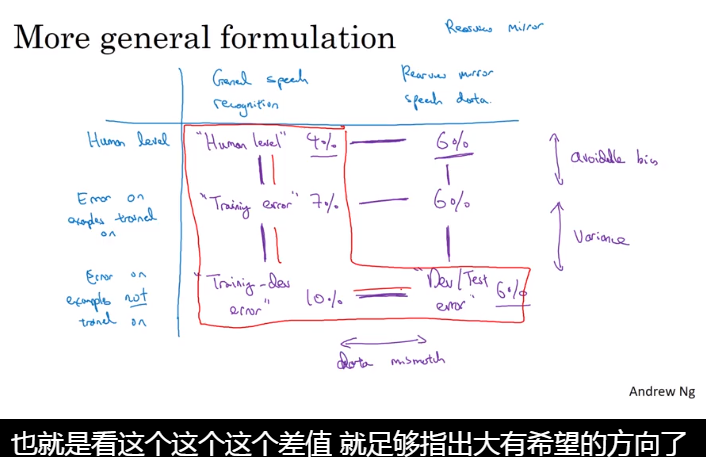 More general formulation
Rearview mirror
General speech
recognition
Rearview mirror
speech data.
Human level
"Human level" 4%
6%
avoidable bias
Error on
examples trained
on
"Training error" 7%
6%
Variance
Error on
examples not
trained on
"Training-dev
error"
10%
"Dev/Test
error"
6%
data mismatch
Andrew Ng
也就是看这个这个这个差值 就足够指出大有希望的方向了